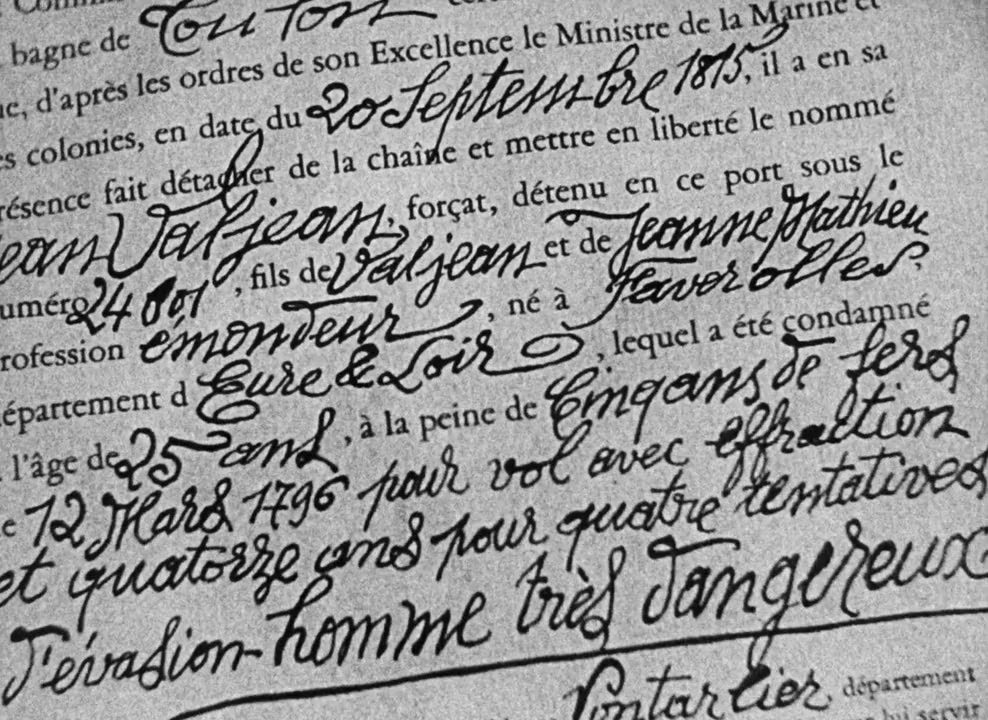 bagne de Toulon
d'après les ordres de son Excellence le Ministre de la Marine et
colonies, en date du 20 Septembre 1815, il a en sa
résence fait détacher de la chaîne et mettre en liberté le nommé
Jean Valjean, forçat, détenu en ce port sous le
uméro 24601, fils de Valjean et de Jeanne Mathieu
rofession émondeur, né à Faverolles
épartement d Eure & Loir, lequel a été condamné
l'âge de 25 ans, à la peine de Cinq ans de fers
e 12 Mars 1796 pour vol avec effraction
et quatorze ans pour quatre tentatives
d'évasion - homme très dangereux
Pontarlier, département
lui servir